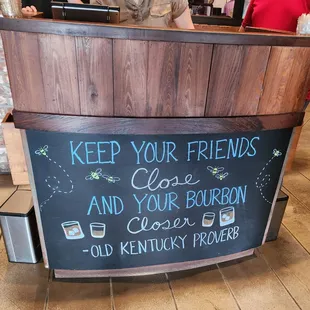 KEEP YOUR FRIENDS
Close
AND YOUR BOURBON
Closer
-OLD KENTUCKY PROVERB